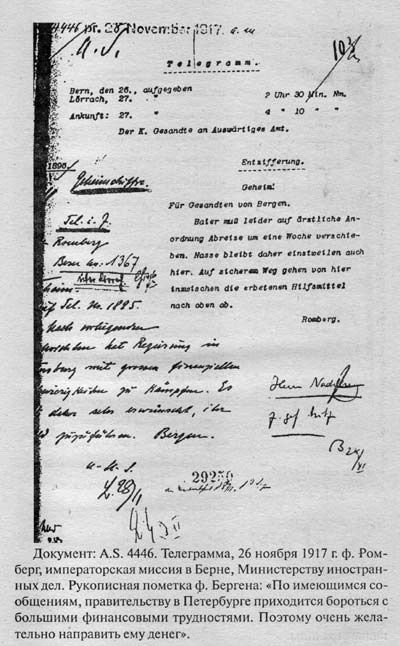 4446 pr. 28 November 1917. a.m.
A.S.
Telegramm.
Bern, den 26., aufgegeben 7 Uhr 30 Min. Nm.
Lörrach, 27. " 4 " 10 " "
Ankunft: 27. "
Der K. Gesandte an Auswärtiges Amt.
Entzifferung.
1895
Geheim!
Geheimchiffre
Für Gesandten von Bergen.
Baier muß leider auf ärztliche An-
ordnung Abreise um eine Woche verschie-
ben. Nasse bleibt daher einstweilen auch
hier. Auf sicherem Weg gehen von hier
inzwischen die erbetenen Hilfsmittel
nach oben ab.
Romberg.
Tel. i. Z.
Romberg
Bern no. 1367
Tel. Nr. 1885.
Nach vorliegenden
hat Regierung in
mit grossen finanziellen
zu kämpfen. Es
sehr erwünscht, ihr
zuzuführen. Bergen.
Herrn
29250
Документ: A.S. 4446. Телеграмма, 26 ноября 1917 г. ф. Ром-
берг, императорская миссия в Берне, Министерству иностран-
ных дел. Рукописная пометка ф. Бергена: «По имеющимся со-
общениям, правительству в Петербурге приходится бороться с
большими финансовыми трудностями. Поэтому очень жела-
тельно направить ему денег».